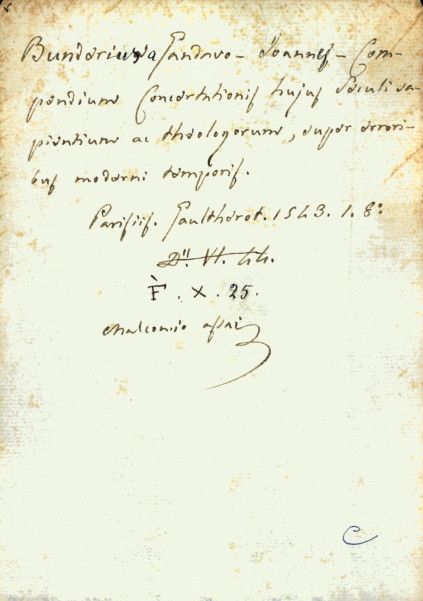 Bunderius, a Gandavo - Joannes - Com-
pendium Concertationis hujus Seculi sa-
pientium ac theologorum, super errori-
bus moderni temporis.
Parisiis. Gaultherot. 1543. 1. 8º
F. X. 25.
malconcio assai
C